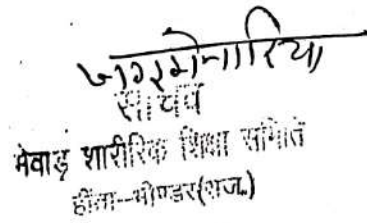 सचिव
मेवाड़ शारीरिक शिक्षा समिति
हींता--भीण्डर(राज.)